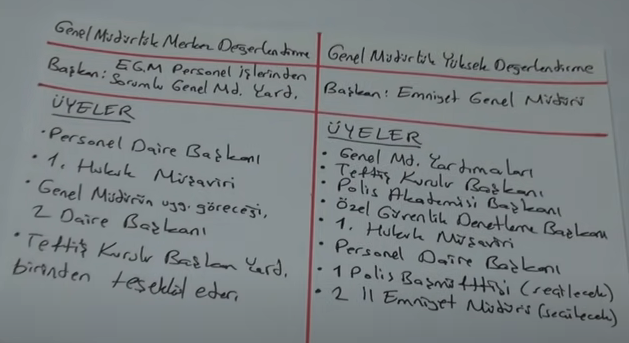 Genel Müdürlük Merkez Değerlendirme
Başkan: EGM Personel işlerinden
Sorumlu Genel Md. Yard.
ÜYELER
• Personel Daire Başkanı
• 1. Hukuk Müşaviri
• Genel Müdürün uyg. göreceği,
2 Daire Başkanı
• Teftiş Kurulu Başkan Yard.
birinden teşekkül eder.
Genel Müdürlük Yüksek Değerlendirme
Başkan: Emniyet Genel Müdürü
ÜYELER
• Genel Md. Yardımcıları
• Teftiş Kurulu Başkanı
• Polis Akademisi Başkanı
• Özel Güvenlik Denetleme Başkanı
• 1. Hukuk Müşaviri
• Personel Daire Başkanı
• 1 Polis Başmüfettişi (seçilecek)
• 2 İl Emniyet Müdürü (seçilecek)